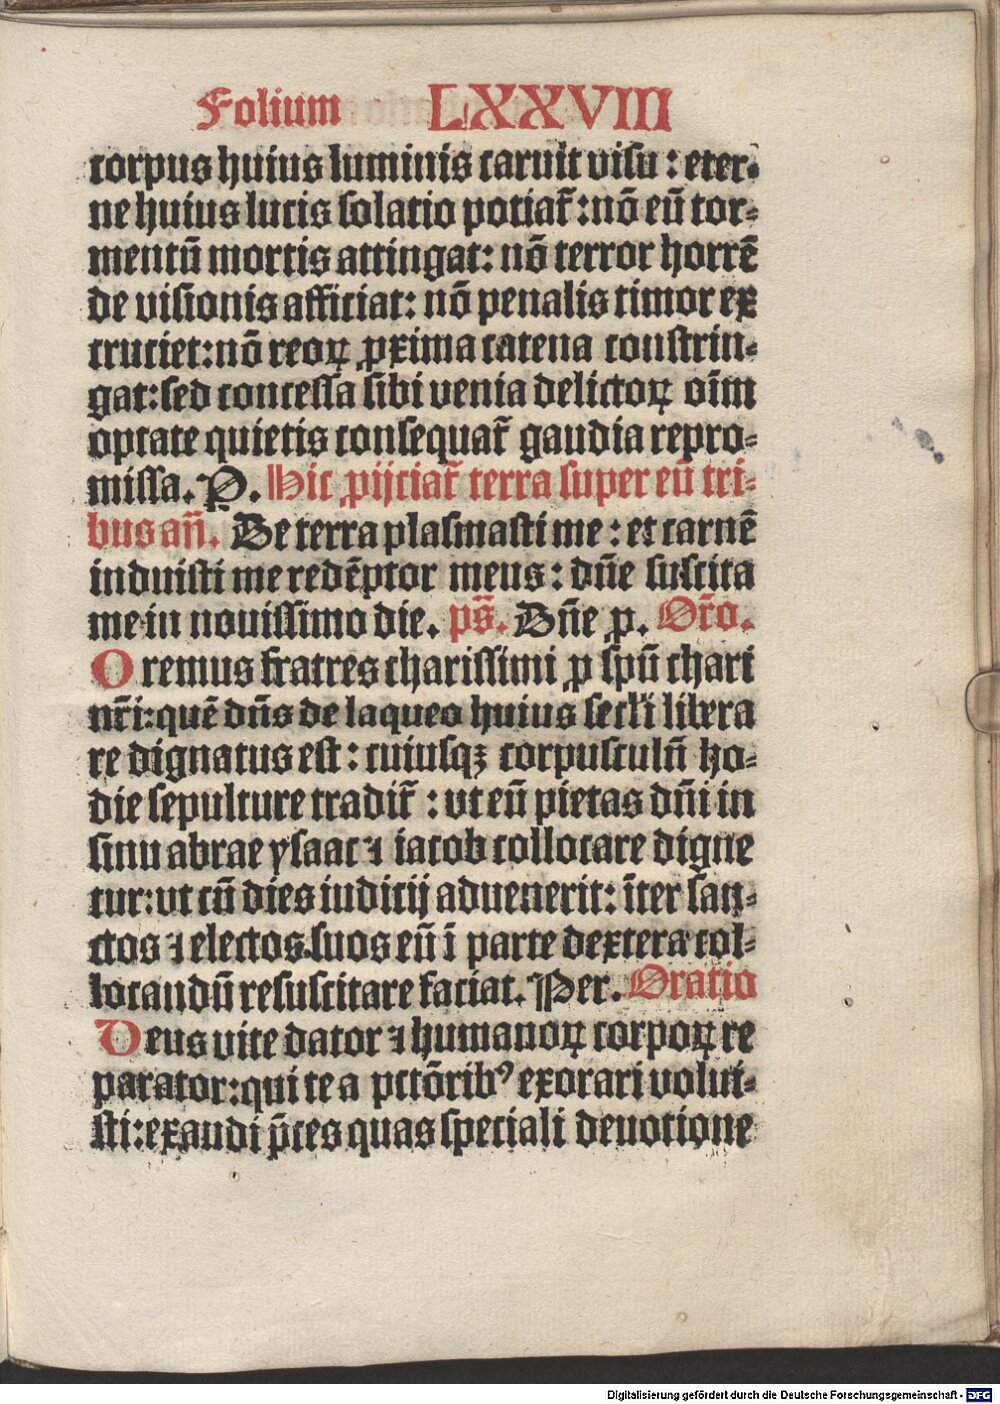 Folium LXXVIII
corpus huius luminis caruit visu : eter-
ne huius lucis solatio potiat᷑ : nō eū tor-
mentū mortis attingat: nō terror horrē
de visionis afficiat: nō penalis timor ex
cruciet: nō reoꝝ ꝓxima catena constrin-
gat: sed concessa sibi venia delictoꝝ oīm
optate quietis consequat᷑ gaudia repro-
missa. P. Hic ꝓijciat᷑ terra super eū tri-
bus an̄. De terra plasmasti me : et carnē
induisti me redēptor meus : dn̄e suscita
me in nouissimo die. ps̄. Dn̄e ꝓ. Or̄o.
Oremus fratres charissimi ꝓ spū chari
nr̄i: quē dn̄s de laqueo huius secl̄i libera
re dignatus est : cuiusqꝫ corpusculū ho-
die sepulture tradit᷑ : vt eū pietas dn̄i in
sinu abrae ysaac ⁊ iacob collocare digne
tur: vt cū dies iudicij aduenerit: īter san-
ctos ⁊ electos suos eū ī parte dextera col-
locandū resuscitare faciat. Per. Oratio
Deus vite dator ⁊ humanoꝝ corpoꝝ re
parator: qui te a pctōribꝰ exorari volui-
sti: exaudi p̄ces quas speciali deuotione
Digitalisierung gefördert durch die Deutsche Forschungsgemeinschaft - DFG